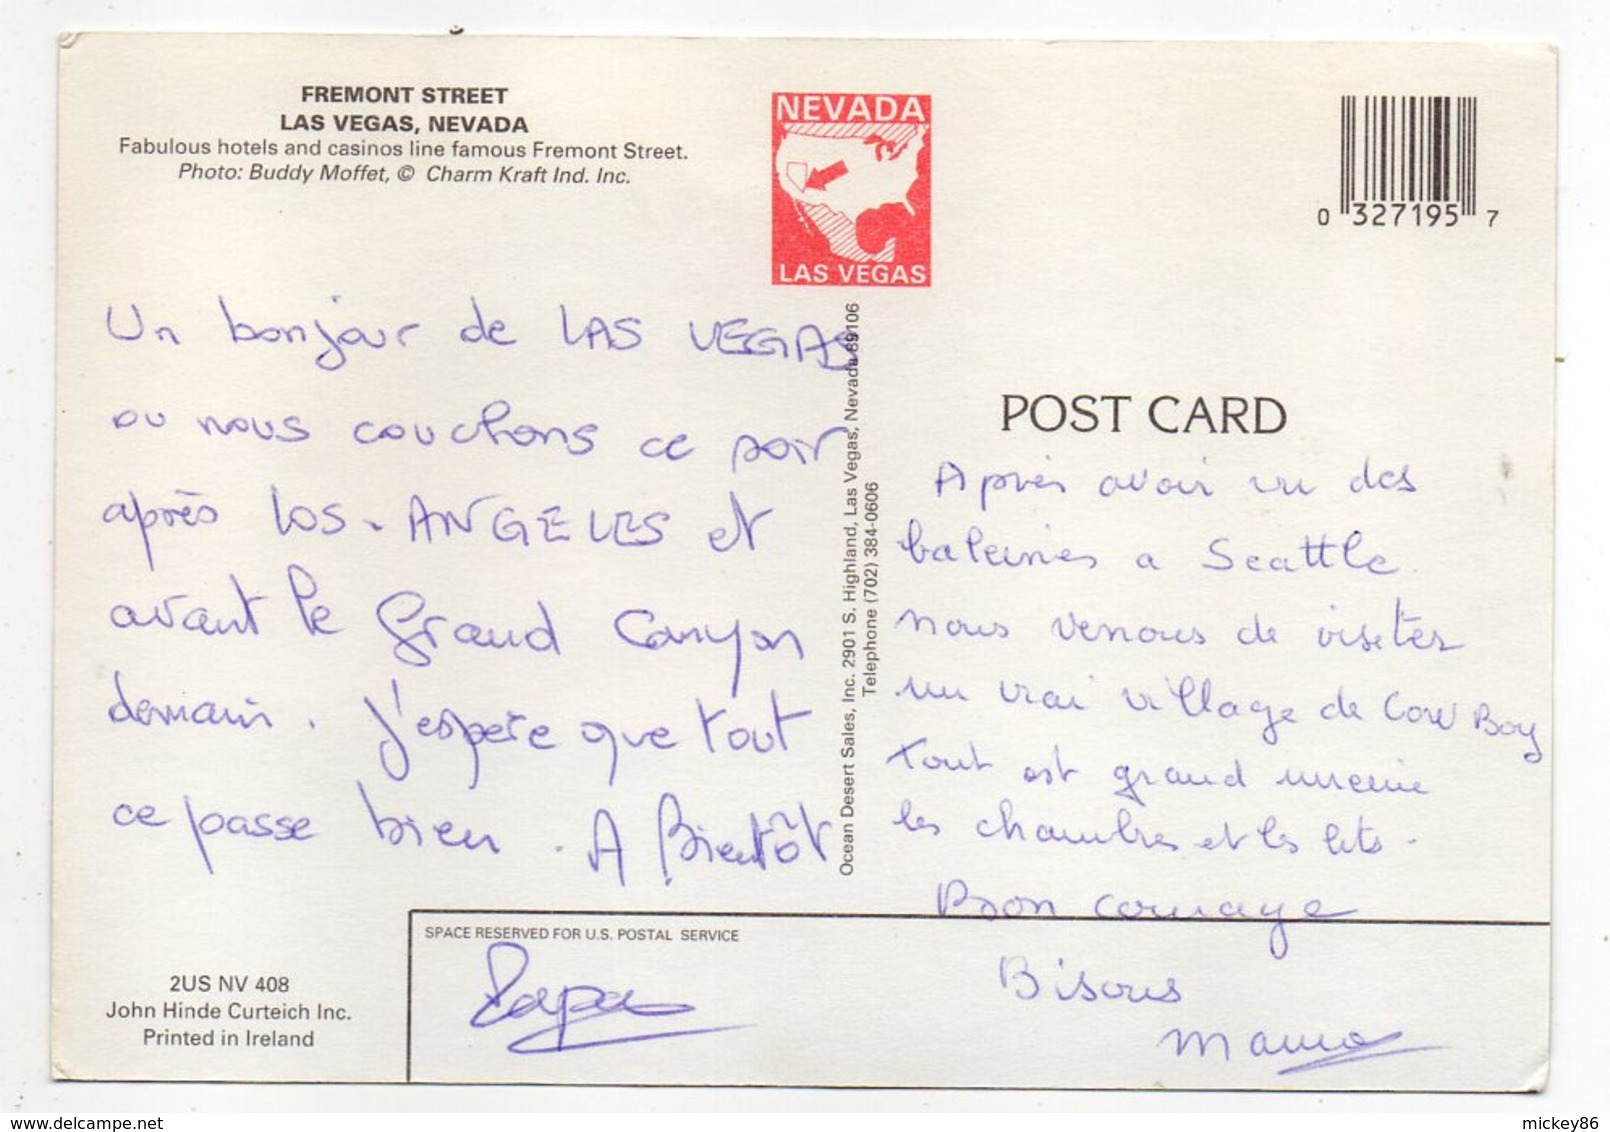 FREMONT STREET
LAS VEGAS, NEVADA
Fabulous hotels and casinos line famous Fremont Street.
Photo: Buddy Moffet, © Charm Kraft Ind. Inc.
NEVADA
LAS VEGAS
0 327195 7
Un bonjour de LAS VEGAS
ou nous couchons ce soir
après LOS-ANGELES et
avant le Grand Canyon
demain. J'espère que tout
ce passe bien. A Bientôt
Papa
Ocean Desert Sales, Inc. 2901 S. Highland, Las Vegas, Nevada 89106
Telephone (702) 384-0606
POST CARD
Après avoir vu des
baleines a Seattle.
nous venons de visiter
un vrai village de Cow Boy
tout est grand
les chambres et les lits.
Bon courage
Bisous
Mama
SPACE RESERVED FOR U.S. POSTAL SERVICE
2US NV 408
John Hinde Curteich Inc.
Printed in Ireland
mickey86